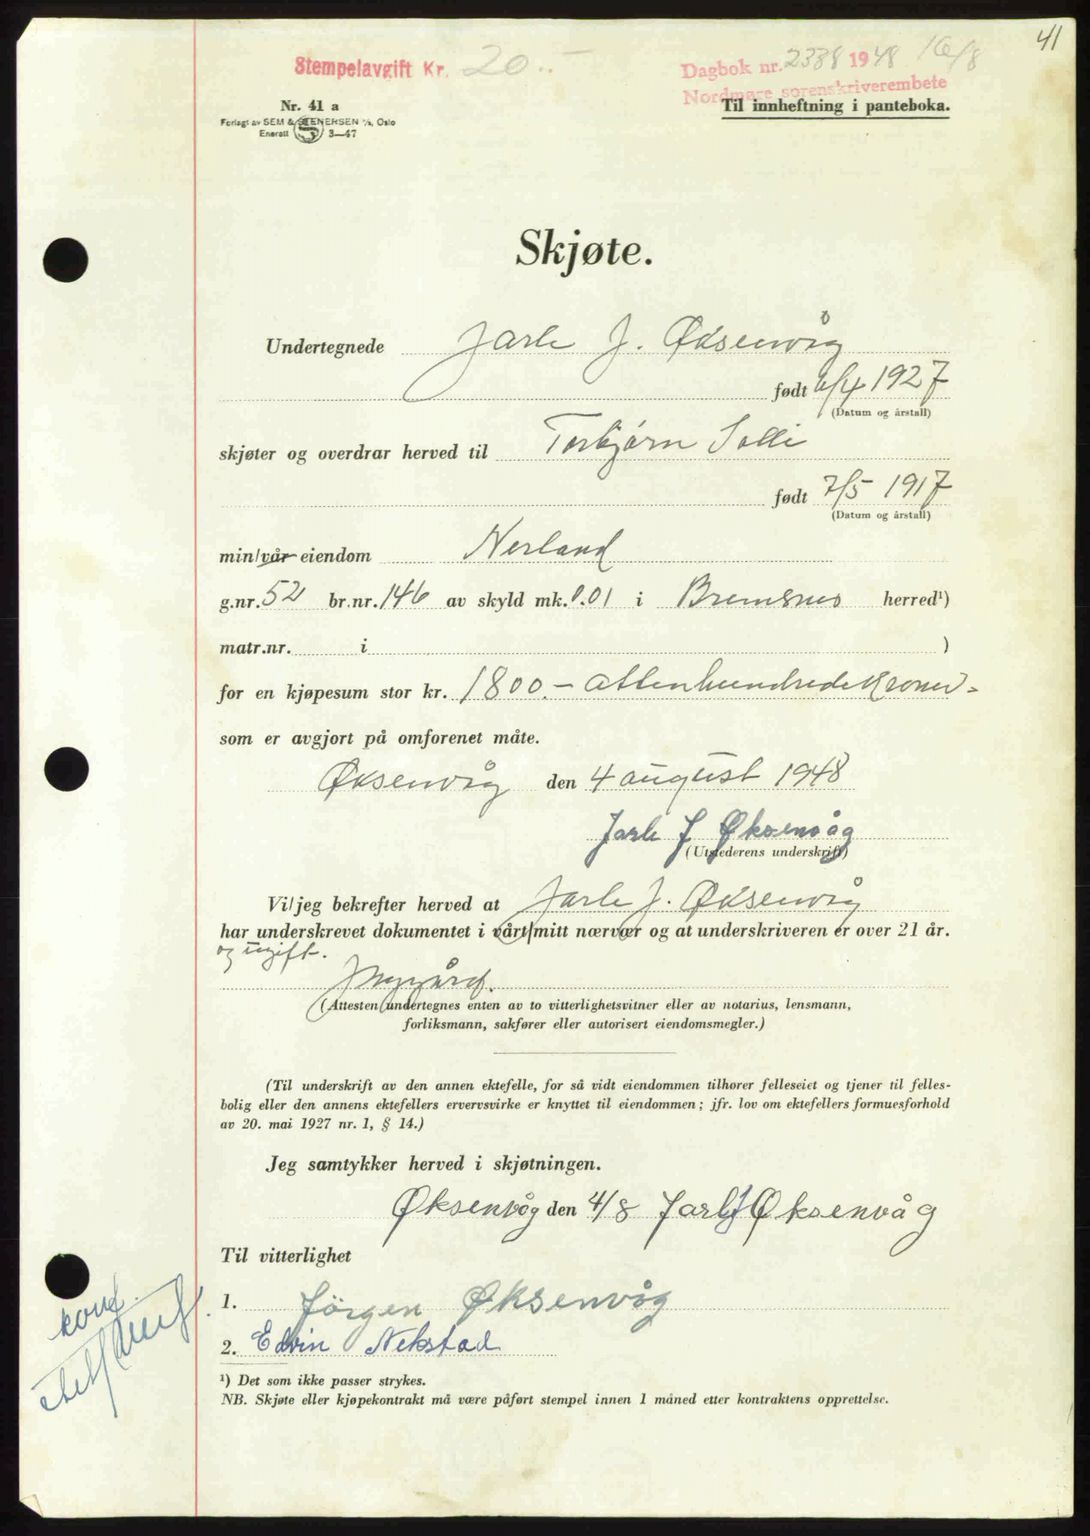 41
Stempelavgift Kr. 20.-
Dagbok nr. 2338 1948 16/8
Nordmøre sorenskriverembete
Nr. 41 a
Forlagt av SEM & STENERSEN A/S, Oslo
Enerett S 3—47
Til innheftning i panteboka.
Skjøte.
Undertegnede Jarle J. Øksenvåg
født 6/4 1927
(Datum og årstall)
skjøter og overdrar herved til Torbjørn Solli
født 7/5 1917
(Datum og årstall)
min/vår eiendom Nerland
g.nr. 52 br.nr. 146 av skyld mk. 0.01 i Bremsnes herred¹)
matr.nr. i )
for en kjøpesum stor kr. 1800.- attenhundrede kroner-
som er avgjort på omforenet måte.
Øksenvåg den 4 august 1948
Jarle J Øksenvåg
(Utstederens underskrift)
Vi/jeg bekrefter herved at Jarle J. Øksenvåg
har underskrevet dokumentet i vårt/mitt nærvær og at underskriveren er over 21 år.
og ugift.
(Attesten undertegnes enten av to vitterlighetsvitner eller av notarius, lensmann,
forliksmann, sakfører eller autorisert eiendomsmegler.)
(Til underskrift av den annen ektefelle, for så vidt eiendommen tilhører felleseiet og tjener til felles-
bolig eller den annens ektefellers ervervsvirke er knyttet til eiendommen; jfr. lov om ektefellers formuesforhold
av 20. mai 1927 nr. 1, § 14.)
Jeg samtykker herved i skjøtningen.
Øksenvåg den 4/8 Jarle J Øksenvåg
Til vitterlighet
1. Jörgen Øksenvåg
2. Edvin Nekstad
konf.
¹) Det som ikke passer strykes.
NB. Skjøte eller kjøpekontrakt må være påført stempel innen 1 måned etter kontraktens opprettelse.